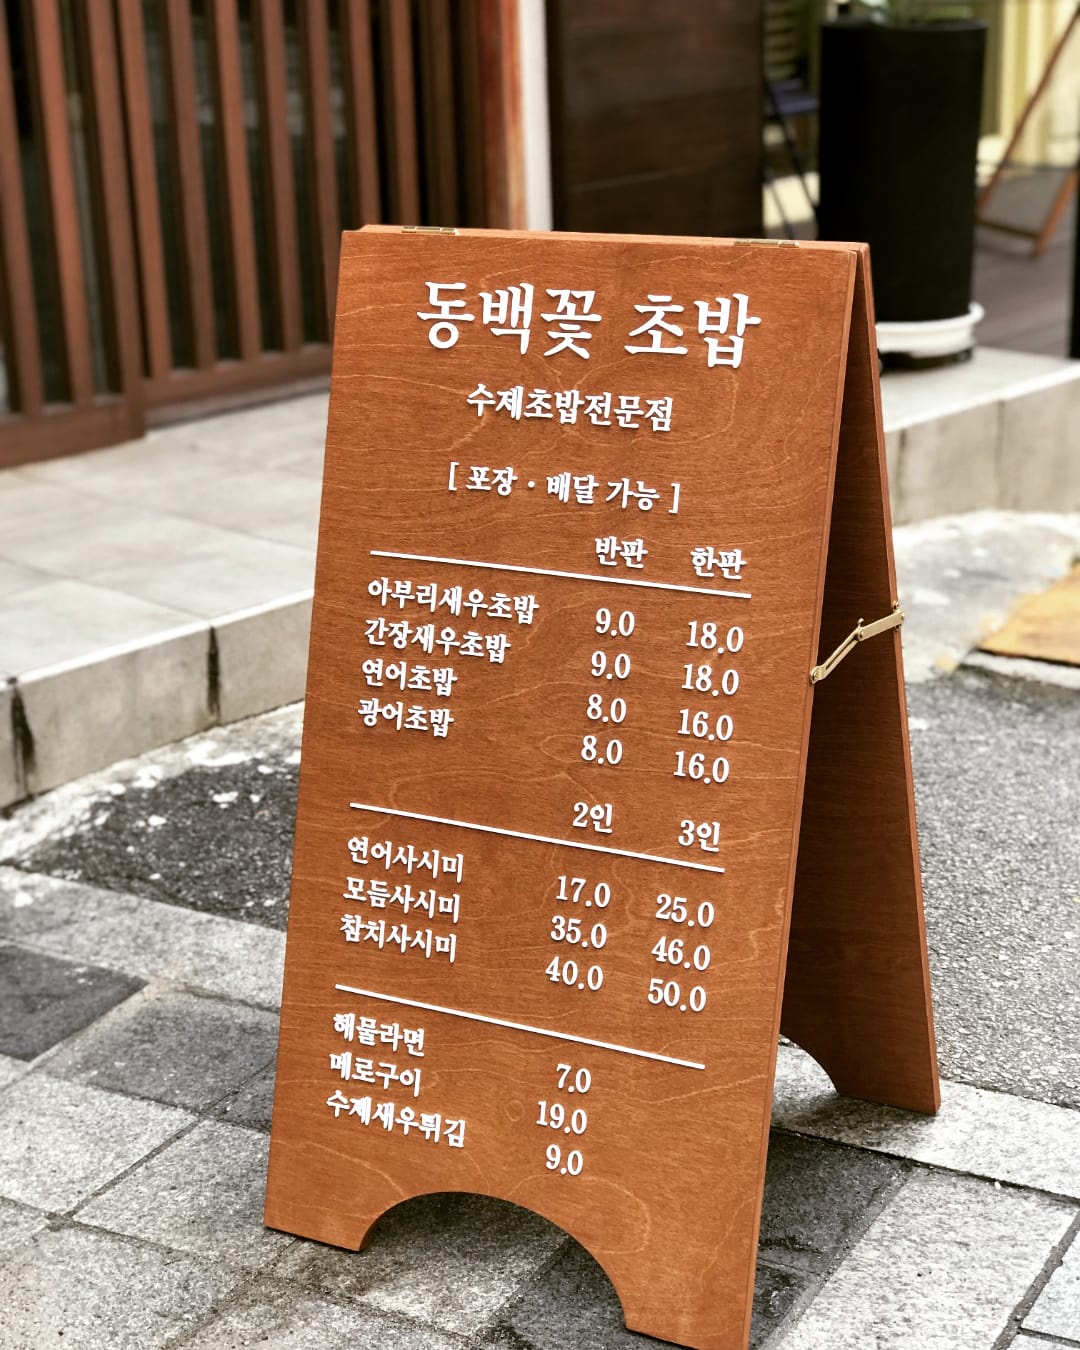 동백꽃 초밥
수제초밥전문점
[ 포장 · 배달 가능 ]
반판 한판
아부리새우초밥 9.0 18.0
간장새우초밥 9.0 18.0
연어초밥 8.0 16.0
광어초밥 8.0 16.0
2인 3인
연어사시미 17.0 25.0
모듬사시미 35.0 46.0
참치사시미 40.0 50.0
해물라면 7.0
메로구이 19.0
수제새우튀김 9.0